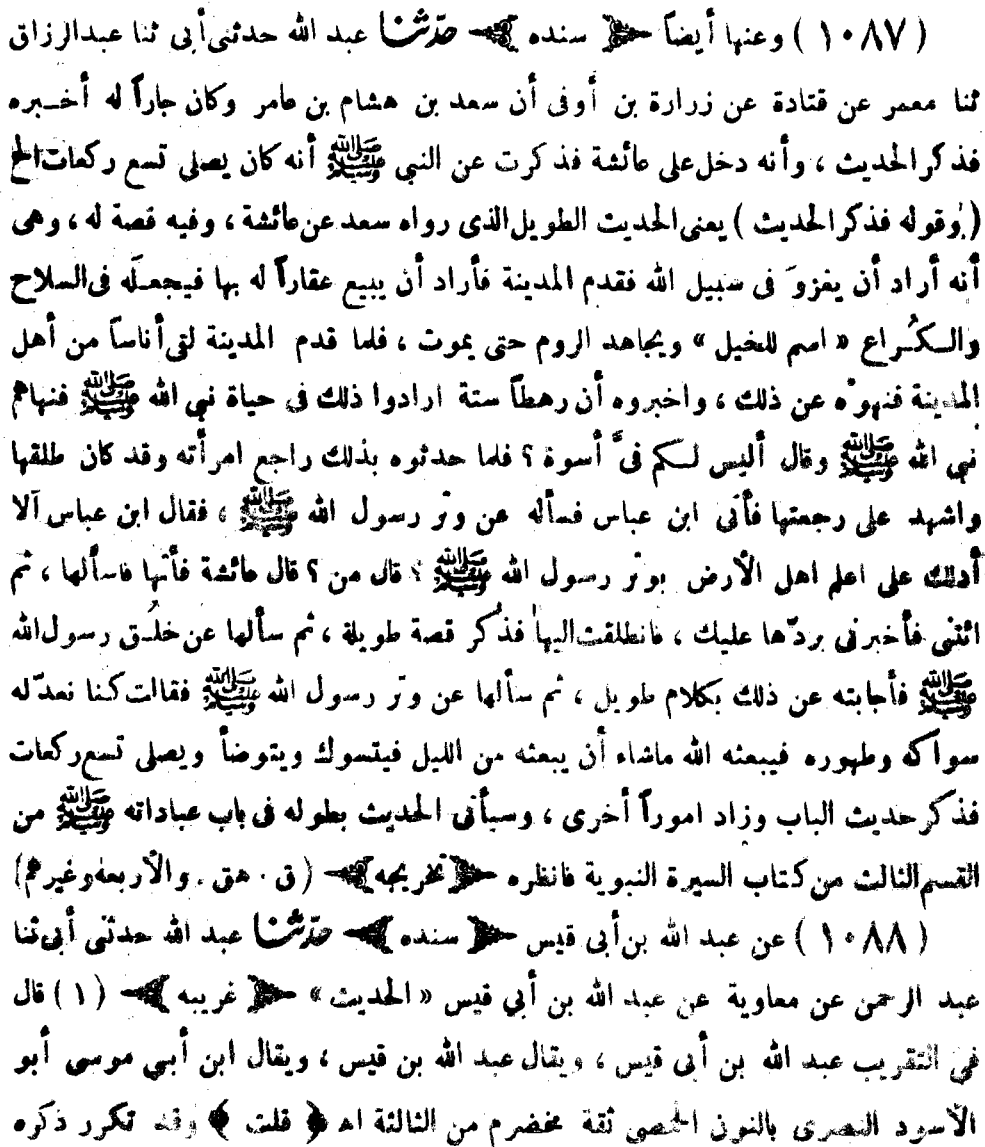 ( ١٠٨٧ ) وعنها أيضاً ﴿ سنده ﴾ حدثنا عبد الله حدثنى أبى ثنا عبدالرزاق
ثنا معمر عن قتادة عن زرارة بن أوفى أن سعد بن هشام بن عامر وكان جاراً له أخبره
فذكر الحديث ، وأنه دخل على عائشة فذكرت عن النبي ﷺ أنه كان يصلى تسع ركعات الخ
( وقوله فذكر الحديث ) يعنى الحديث الطويل الذى رواه سعد عن عائشة ، وفيه قصة له ، وهى
أنه أراد أن يغزوَ فى سبيل الله فقدم المدينة فأراد أن يبيع عقاراً له بها فيجعله فى السلاح
والكُراع « اسم للخيل » ويجاهد الروم حتى يموت ، فلما قدم المدينة لقى أناساً من أهل
المدينة فنهوْه عن ذلك ، واخبروه أن رهطاً ستة ارادوا ذلك فى حياة نبى الله ﷺ فنهاهم
نبى الله ﷺ وقال أليس لكم فىَّ أسوة ؟ فلما حدثوه بذلك راجع امرأته وقد كان طلقها
واشهد على رجعتها فأتى ابن عباس فسأله عن وتر رسول الله ﷺ ، فقال ابن عباس ألا
أدلك على اعلم اهل الأرض بوتر رسول الله ﷺ ؟ قال من ؟ قال عائشة فأتها فاسألها ، ثم
ائتنى فأخبرنى بردّها عليك ، فانطلقت اليها فذكر قصة طويلة ، ثم سألها عن خلُق رسول الله
ﷺ فأجابته عن ذلك بكلام طويل ، ثم سألها عن وتر رسول الله ﷺ فقالت كنا نعدّ له
سواكه وطهوره فيبعثه الله ماشاء أن يبعثه من الليل فيتسوك ويتوضأ ويصلى تسع ركعات
فذكر حديث الباب وزاد اموراً أخرى ، وسيأتى الحديث بطوله فى باب عباداته ﷺ من
القسم الثالث من كتاب السيرة النبوية فانظره ﴿ تخريجه ﴾ ( ق . هق . والأربعة وغيرهم )
( ١٠٨٨ ) عن عبد الله بن أبى قيس ﴿ سنده ﴾ حدثنا عبد الله حدثنى أبى ثنا
عبد الرحمن عن معاوية عن عبد الله بن أبي قيس « الحديث » ﴿ غريبه ﴾ ( ١ ) قال
فى التقريب عبد الله بن أبى قيس ، ويقال عبد الله بن قيس ، ويقال ابن أبي موسى أبو
الأسود النصرى بالنون الحمصى ثقة مخضرم من الثالثة اه ﴿ قلت ﴾ وقد تكرر ذكره